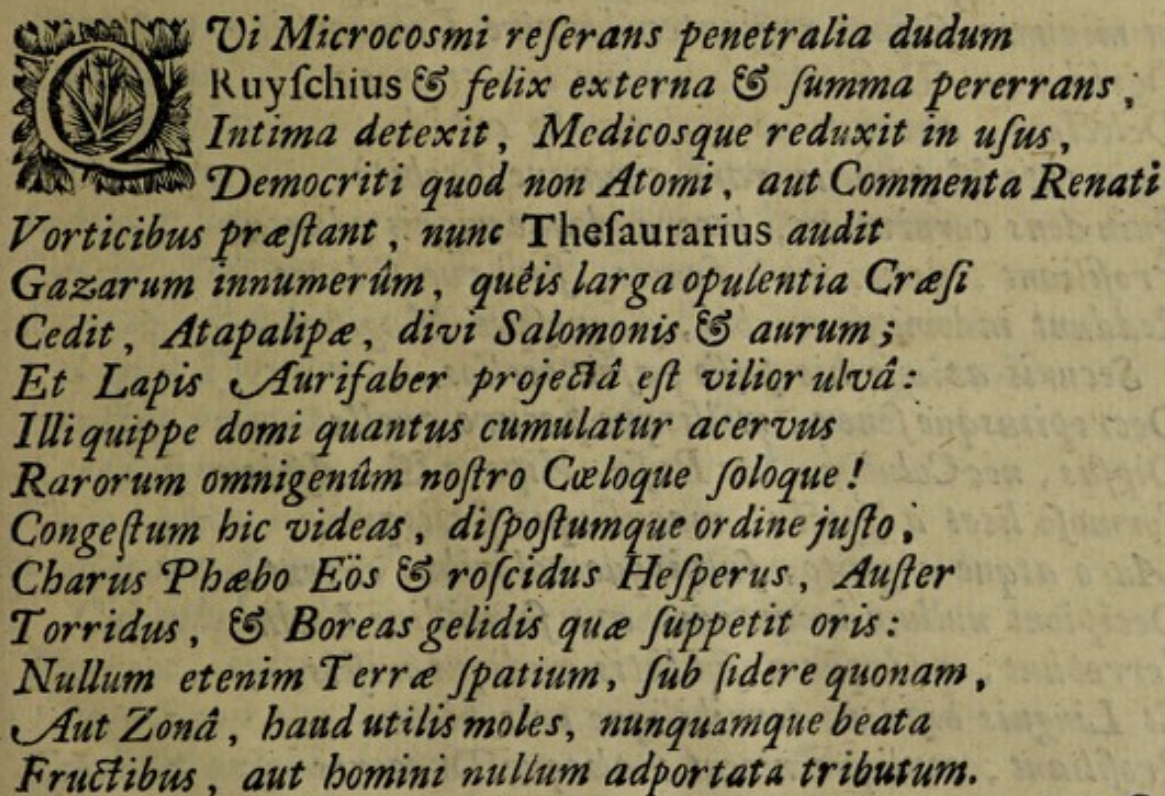 QUi Microcosmi reſerans penetralia dudum
Ruyſchius & felix externa & ſumma pererrans,
Intima detexit, Medicosque reduxit in uſus,
Democriti quod non Atomi, aut Commenta Renati
Vorticibus præſtant, nunc Theſaurarius audit
Gazarum innumerûm, quêis larga opulentia Cræſi
Cedit, Atapalipæ, divi Salomonis & aurum;
Et Lapis Aurifaber projectâ eſt vilior ulvâ:
Illi quippe domi quantus cumulatur acervus
Rarorum omnigenûm noſtro Cœloque ſoloque!
Congeſtum hic videas, diſpoſtumque ordine juſto,
Charus Phæbo Eös & roſcidus Heſperus, Auſter
Torridus, & Boreas gelidis quæ ſuppetit oris:
Nullum etenim Terræ ſpatium, ſub ſidere quonam,
Aut Zonâ, haud utilis moles, nunquamque beata
Fructibus, aut homini nullum adportata tributum.